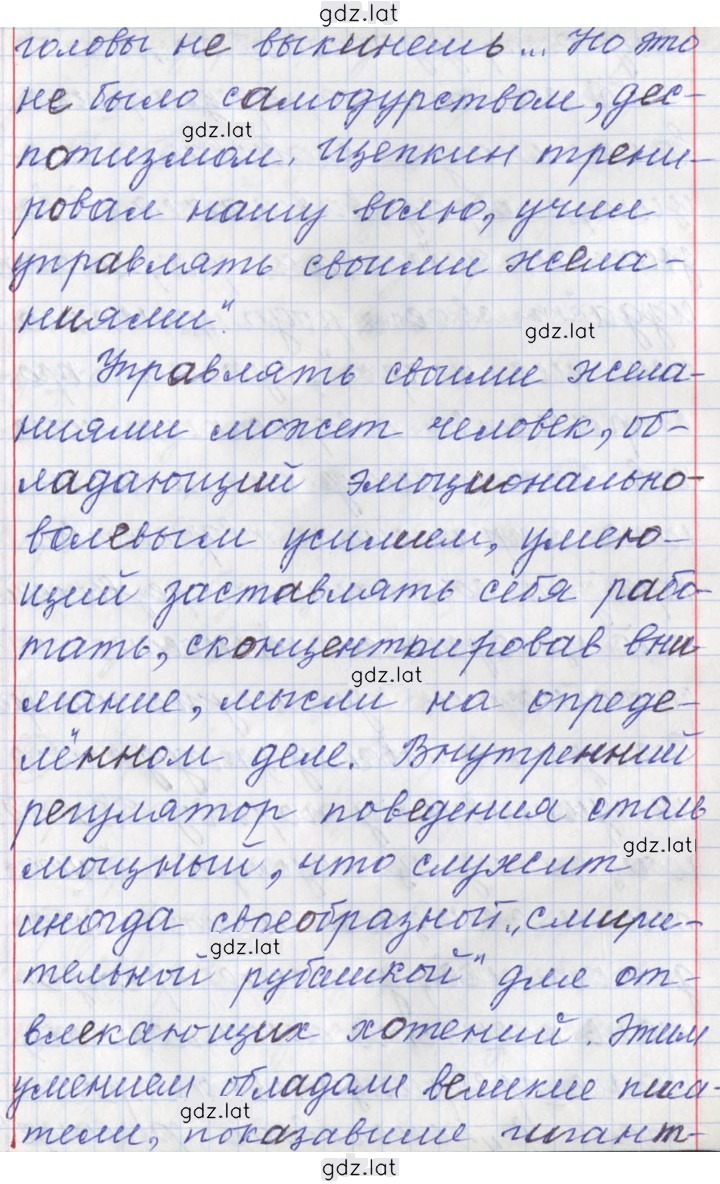 gdz.lat
головы не выкинешь... Но это
не было самодурством, дес-
gdz.lat
потизмом. Щепкин трени-
ровал нашу волю, учил
управлять своими жела-
ниями".
gdz.lat
Управлять своими жела-
ниями может человек, об-
ладающий эмоционально-
волевым усилием, умею-
щий заставлять себя рабо-
тать, сконцентрировав вни
gdz.lat
мание, мысли на опреде-
лённом деле. Внутренний
регулятор поведения столь
gdz.lat
мощный, что служит
иногда своеобразной „смири-
gdz.lat
тельной рубашкой" для от-
влекающих хотений. Этим
умением обладали великие писа-
gdz.lat
тели, показавшие гигант-
gdz.lat